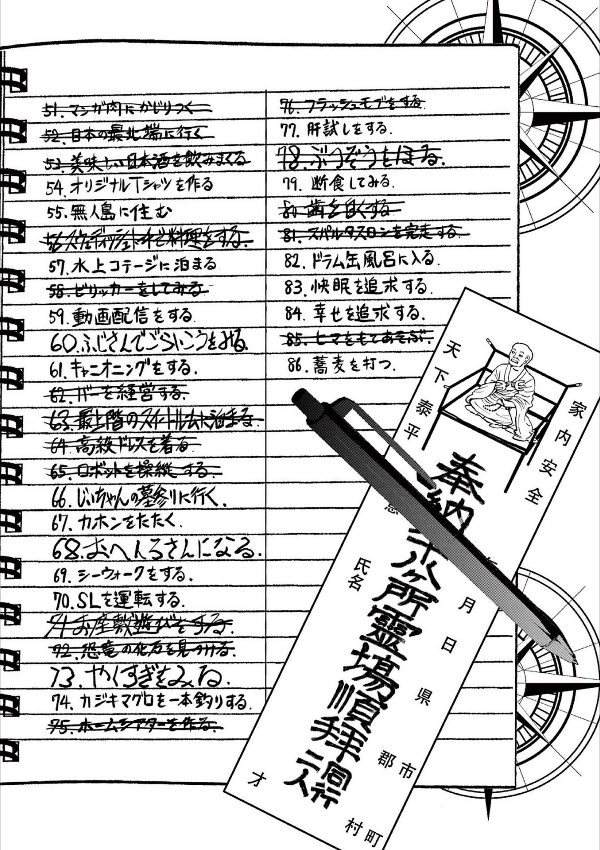 51. マンガ肉にかじりつく
52. 日本の最北端に行く
53. 美味しい日本酒を飲みまくる
54. オリジナルTシャツを作る
55. 無人島に住む
56. スウェーディッシュトーチで料理をする.
57. 水上コテージに泊まる
58. ヒッチハイカーをしてみる
59. 動画配信をする.
60. ふじさんでごらいこうをみる.
61. キャニオニングをする.
62. バーを経営する.
63. 最上階のスイートルームに泊まる.
64. 高級ドレスを着る
65. ロボットを操縦する.
66. じいちゃんの墓参りに行く.
67. カホンをたたく.
68. おへんろさんになる.
69. シーウォークをする.
70. SLを運転する.
71. お座敷遊びをする.
72. 恐竜の化石を見つける.
73. やくすぎをみる.
74. カジキマグロを一本釣りする.
75. ホームシアターを作る.
76. フラッシュモブをする.
77. 肝試しをする.
78. ぶつぞうをほる.
79. 断食してみる.
80. 歯を白くする
81. スパルタスロンを完走する.
82. ドラム缶風呂に入る.
83. 快眠を追求する.
84. 幸せを追求する.
85. ヒマをもてあそぶ.
86. 蕎麦を打つ.
天下泰平
家内安全
奉納
所霊場順拝
同行二人
月
日
県
郡
市
町
村
氏名
才